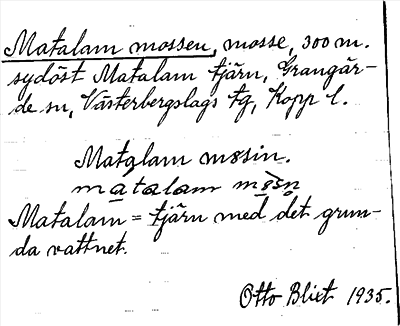 Matalam mossen, mosse, 300 m.
sydöst Matalam tjärn, Grangär-
de sn, Västerbergslags tg, Kopp l.
Matalam møsin.
matalam
Matalam = tjärn med det grun-
da vattnet.
Otto Blixt 1935.